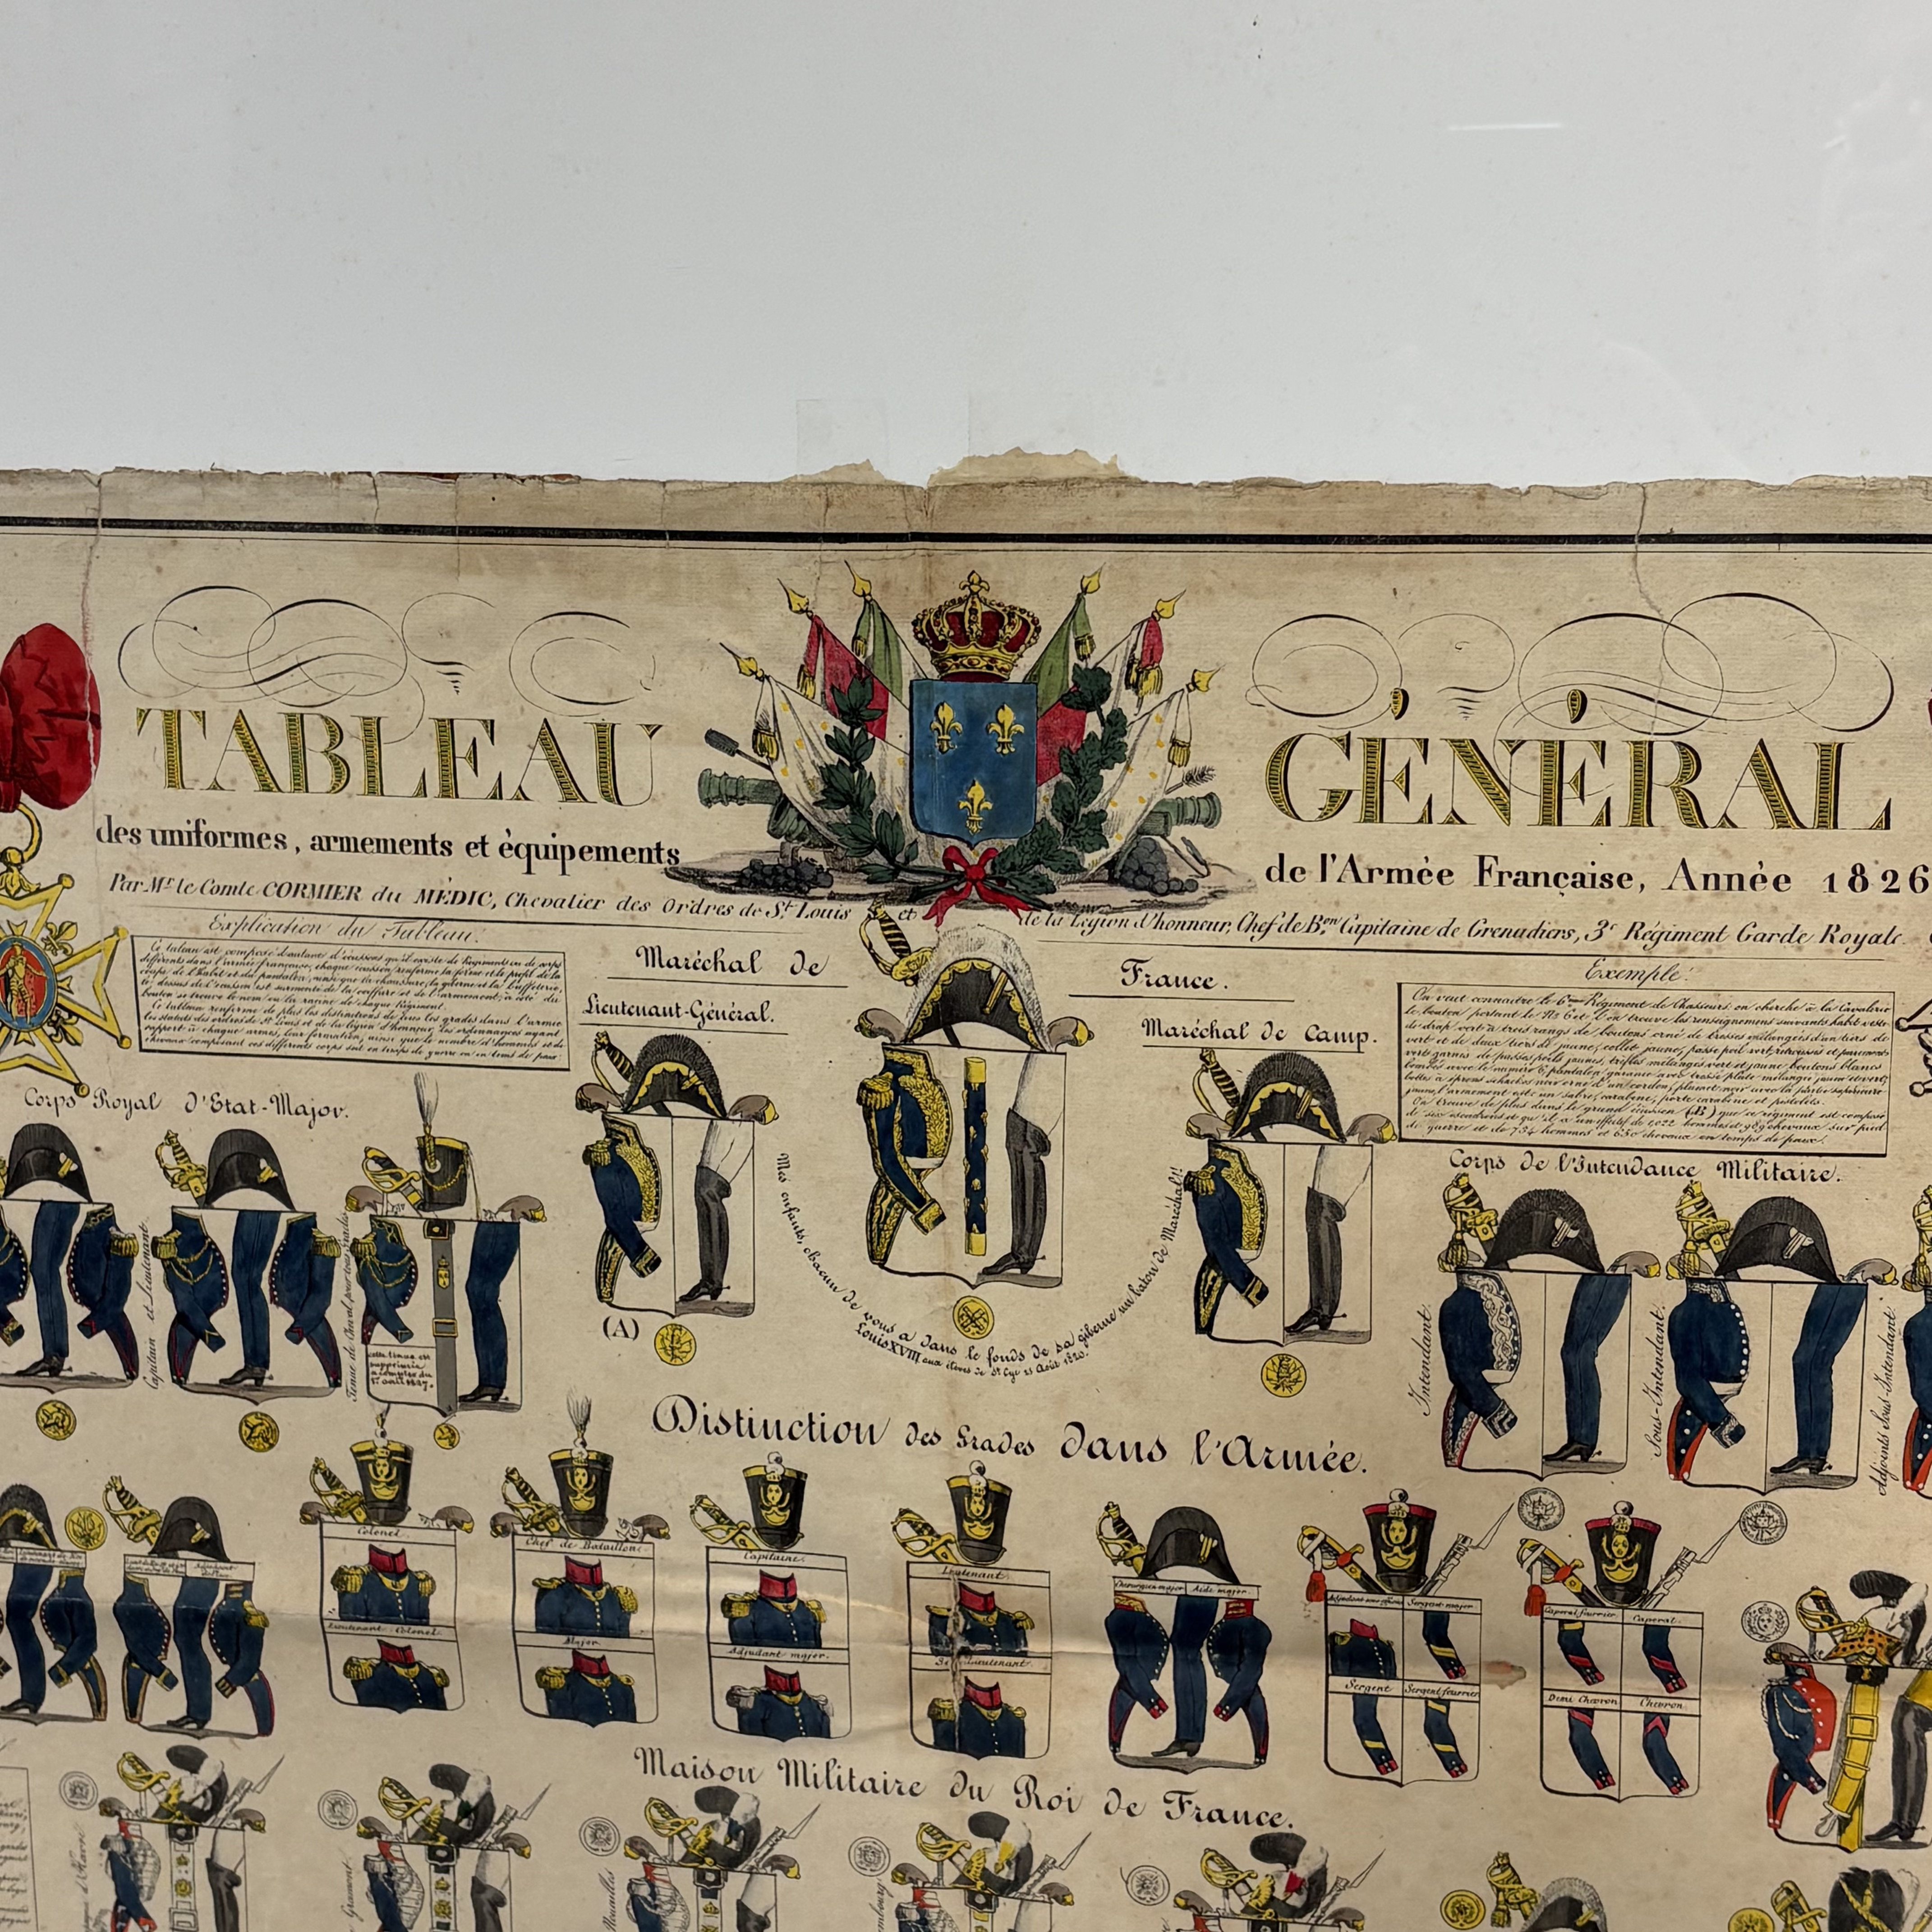 TABLEAU GÉNÉRAL
des uniformes, armements et èquipements de l'Armèe Française, Annèe 1826
Par Mr le Comte CORMIER du MÉDIC, Chevalier des Ordres de St Louis et de la Légion d'honneur, Chef de Bon Capitaine de Grenadiers, 3e Régiment Garde Royale.
Explication du Tableau.
Ce tableau est composé d'autant d'écussons qu'il existe de Régiments ou de corps
différents dans l'armée française, chaque écusson renferme la forme et le profil de la
coupe de l'habit et du pantalon, ainsi que la chaussure, la giberne et la buffleterie,
le dessus de l'écusson est surmonté de la coiffure et de l'armement, à côté du
bouton se trouve le nom ou la racine de chaque Régiment.
Ce tableau renferme de plus les distinctions de tous les grades dans l'armée
les statuts des ordres de St Louis et de la légion d'honneur, les ordonnances ayant
rapport à chaque armes, leur formation, ainsi que le nombre d'hommes et de
chevaux composant ces différents corps soit en temps de guerre ou en tems de paix
Maréchal de France.
Lieutenant-Général.
Maréchal de Camp.
Exemple.
On veut connaître le 6me Régiment de Chasseurs on cherche à la Cavalerie
le bouton portant le No 6 et l'on trouve les renseignemens suivants habit veste
de drap vert à trois rangs de boutons orné de tresses mélangées d'un tiers de
vert et de deux tiers de jaune, collet jaune, passe poil vert, retroussis et parements
verts garnis de passes poils jaunes, trèfles mélangés vert et jaune, boutons blancs
bombés avec le numéro 6, pantalon garance avec tresse plate mélangée jaune et vert,
bottes à éperons schackos noir orné d'un cordon, plumet noir avec la partie supérieure
jaune, l'armement est un sabre, carabine, porte carabine et pistolets.
On trouve de plus dans le grand écusson (B) que ce régiment est composé
de six escadrons et qu'il a un effectif de 1,022 hommes et 989 chevaux sur pied
de guerre et de 734 hommes et 630 chevaux en temps de paix.
Corps Royal d'Etat-Major.
Corps de l'Intendance Militaire.
Capitaine et Lieutenant
Tenue de Cheval pour tous grades
cette tenue est
supprimée
à compter du
1er avril 1827.
(A)
Mes enfants, chacun de vous a dans le fonds de sa giberne un bâton de Maréchal!!
Louis XVIII aux élèves de St Cyr
Intendant
Sous-Intendant.
Adjoints Sous-Intendant
Distinction des Grades dans l'Armée.
Colonel.
Lieutenant-Colonel.
Chef de Bataillon.
Major.
Capitaine.
Adjudant major.
Lieutenant.
Lieutenant.
Chirurgien major Aide major.
Adjudant sous officier Sergent major.
Sergent Sergent fourrier
Caporal fourrier Caporal.
Demi Chevron Chevron.
Maison Militaire du Roi de France.
Gramont
Noailles